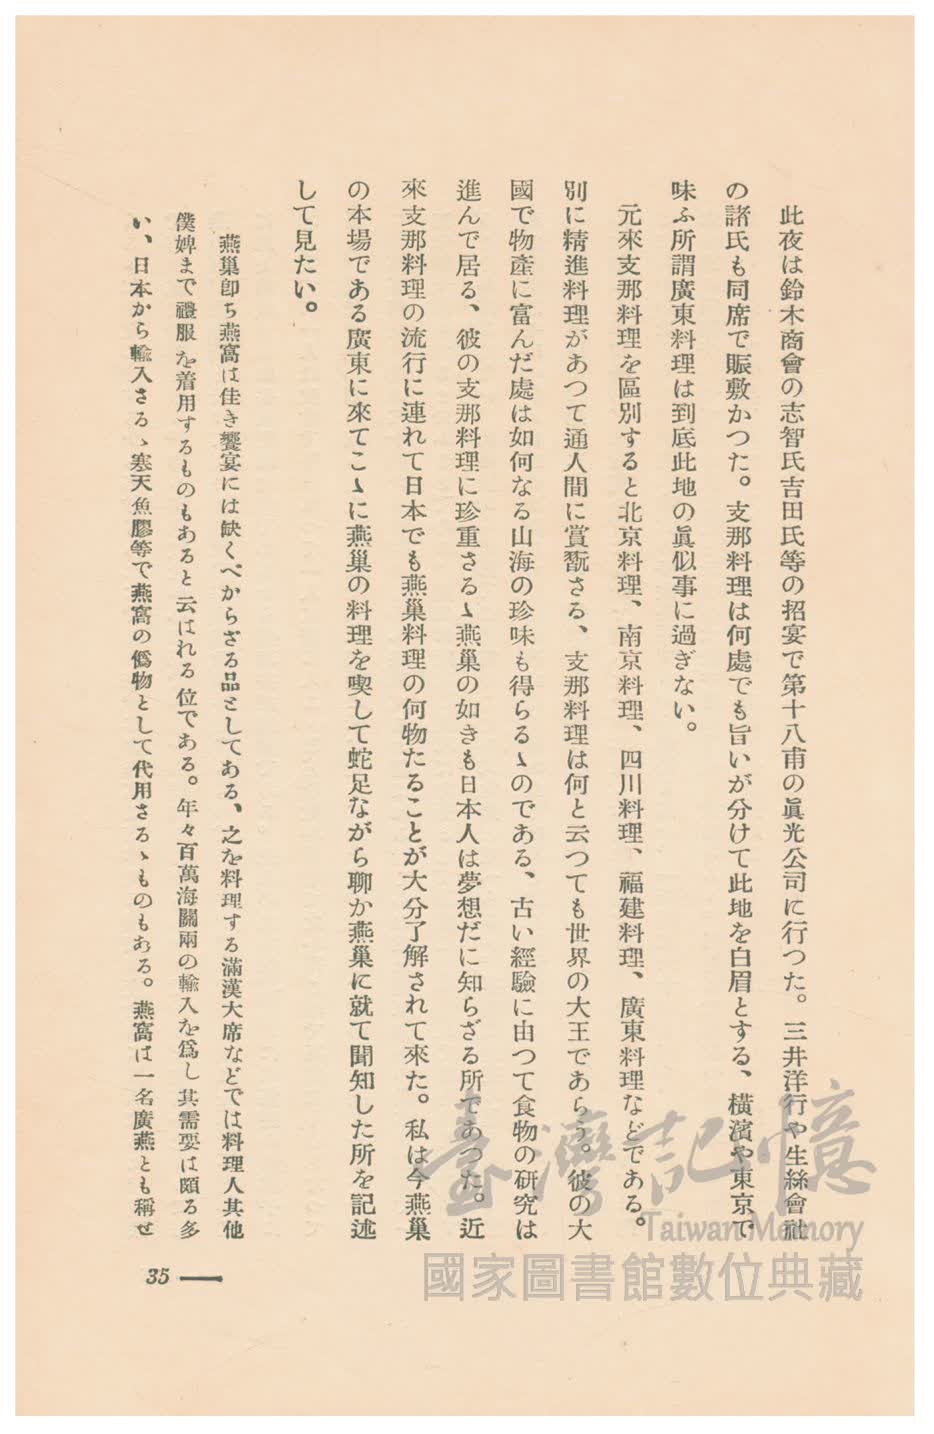 此夜は鈴木商會の志智氏吉田氏等の招宴で第十八甫の眞光公司に行つた。三井洋行や生絲會社
の諸氏も同席で賑敷かつた。支那料理は何處でも旨いが分けて此地を白眉とする、橫濱や東京で
味ふ所謂廣東料理は到底此地の眞似事に過ぎない。
元來支那料理を區別すると北京料理、南京料理、四川料理、福建料理、廣東料理などである。
別に精進料理があつて通人間に賞翫さる、支那料理は何と云つても世界の大王であらう。彼の大
國で物產に富んだ處は如何なる山海の珍味も得らるゝのである、古い經驗に由つて食物の硏究は
進んで居る、彼の支那料理に珍重さるゝ燕巢の如きも日本人は夢想だに知らざる所であつた。近
來支那料理の流行に連れて日本でも燕巢料理の何物たることが大分了解されて來た。私は今燕巢
の本場である廣東に來てこゝに燕巢の料理を喫して蛇足ながら聊か燕巢に就て聞知した所を記述
して見たい。
燕巢卽ち燕窩は佳き饗宴には缺くべからざる品としてある、之を料理する滿漢大席などでは料理人其他
僕婢まで禮服を着用するものもあると云はれる位である。年々百萬海關兩の輸入を爲し其需要は頗る多
い、日本から輸入さるゝ寒天魚膠等で燕窩の僞物として代用さるゝものもある。燕窩は一名廣燕とも稱せ
35
臺灣記憶
Taiwan Memory
國家圖書館數位典藏